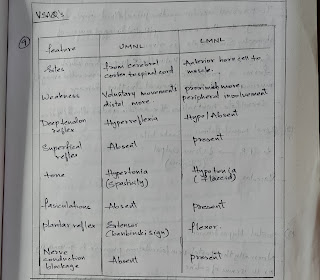 VSAQ's
9)
feature UMNL LMNL
Sites from cerebral Anterior horn cell to
cortex to spinal cord muscle.
Weakness Voluntary movements proximal more,
distal more peripheral involvement
Deep tendon Hyperreflexia Hypo/Absent
reflex
Superficial Absent present
reflex
tone Hypertonia Hypotonia
(Spasticity) (flaccid)
fasculations Absent present
plantar reflex Extensor flexor.
(banbinski sign)
Nerve
conduction Absent present
blockage